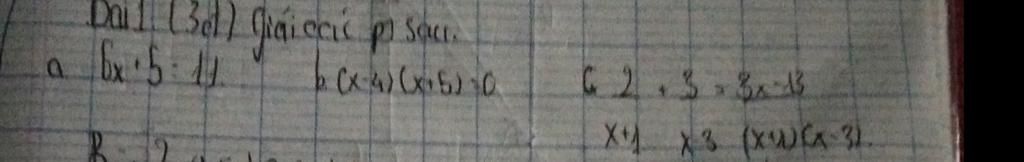 Bài 1 (3đ) giải các pt sau.
a 6x + 5 = 11 b. (x-4)(x+5) = 0 c, 2 + 3 = 3x-13
x+1 x-3 (x+1)(x-3)